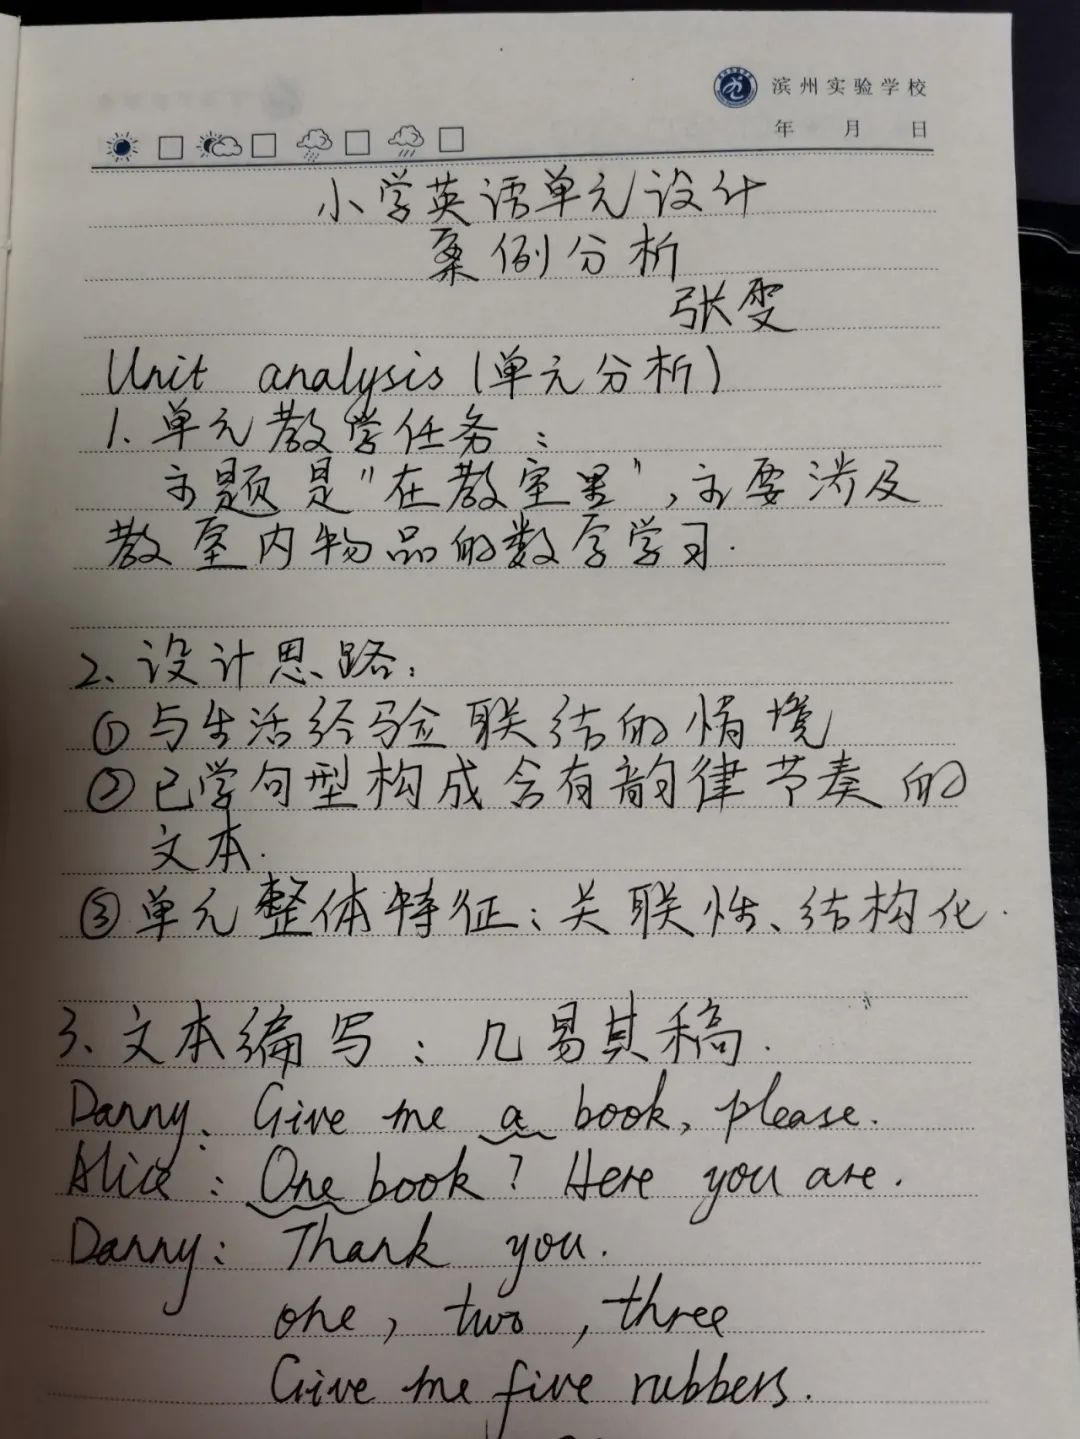 滨州实验学校
年 月 日
小学英语单元设计
案例分析
张雯
Unit analysis (单元分析)
1. 单元教学任务：
主题是"在教室里",主要涉及
教室内物品的数字学习.
2. 设计思路：
①与生活经验联结的情境
②已学句型构成含有韵律节奏的
文本.
③单元整体特征：关联性、结构化.
3. 文本编写：几易其稿.
Danny: Give me a book, please.
Alice: One book? Here you are.
Danny: Thank you.
one, two, three
Give me five rubbers.